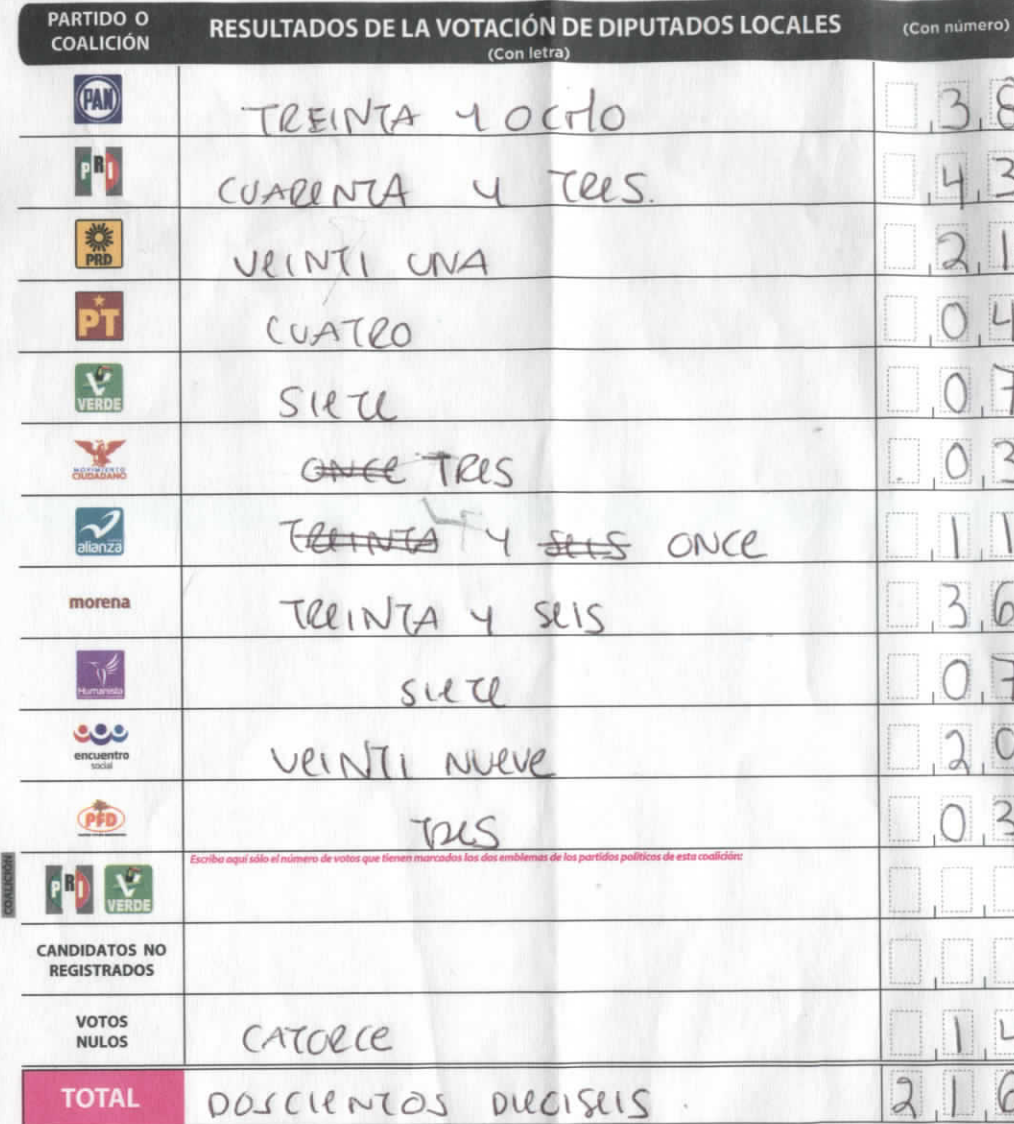 PARTIDO O COALICIÓN RESULTADOS DE LA VOTACIÓN DE DIPUTADOS LOCALES (Con letra) (Con número)
PAN TREINTA Y OCHO 38
PRI CUARENTA Y TRES. 43
PRD VEINTI UNA 21
PT CUATRO 04
VERDE SIETE 07
MOVIMIENTO CIUDADANO ONCE TRES 03
alianza TREINTA Y SEIS ONCE 11
morena TREINTA Y SEIS 36
Humanista SIETE 07
encuentro social VEINTI NUEVE 29
PFD TRES 03
Escriba aquí sólo el número de votos que tienen marcados los dos emblemas de los partidos políticos de esta coalición:
COALICIÓN PRI VERDE
CANDIDATOS NO REGISTRADOS
VOTOS NULOS CATORCE 14
TOTAL DOSCIENTOS DIECISEIS. 216